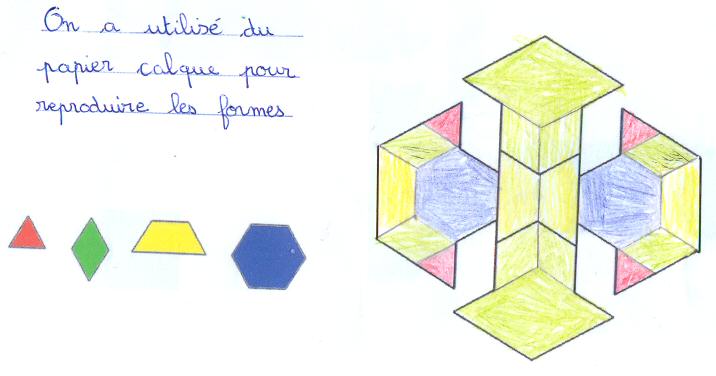 On a utilisé du
papier calque pour
reproduire les formes